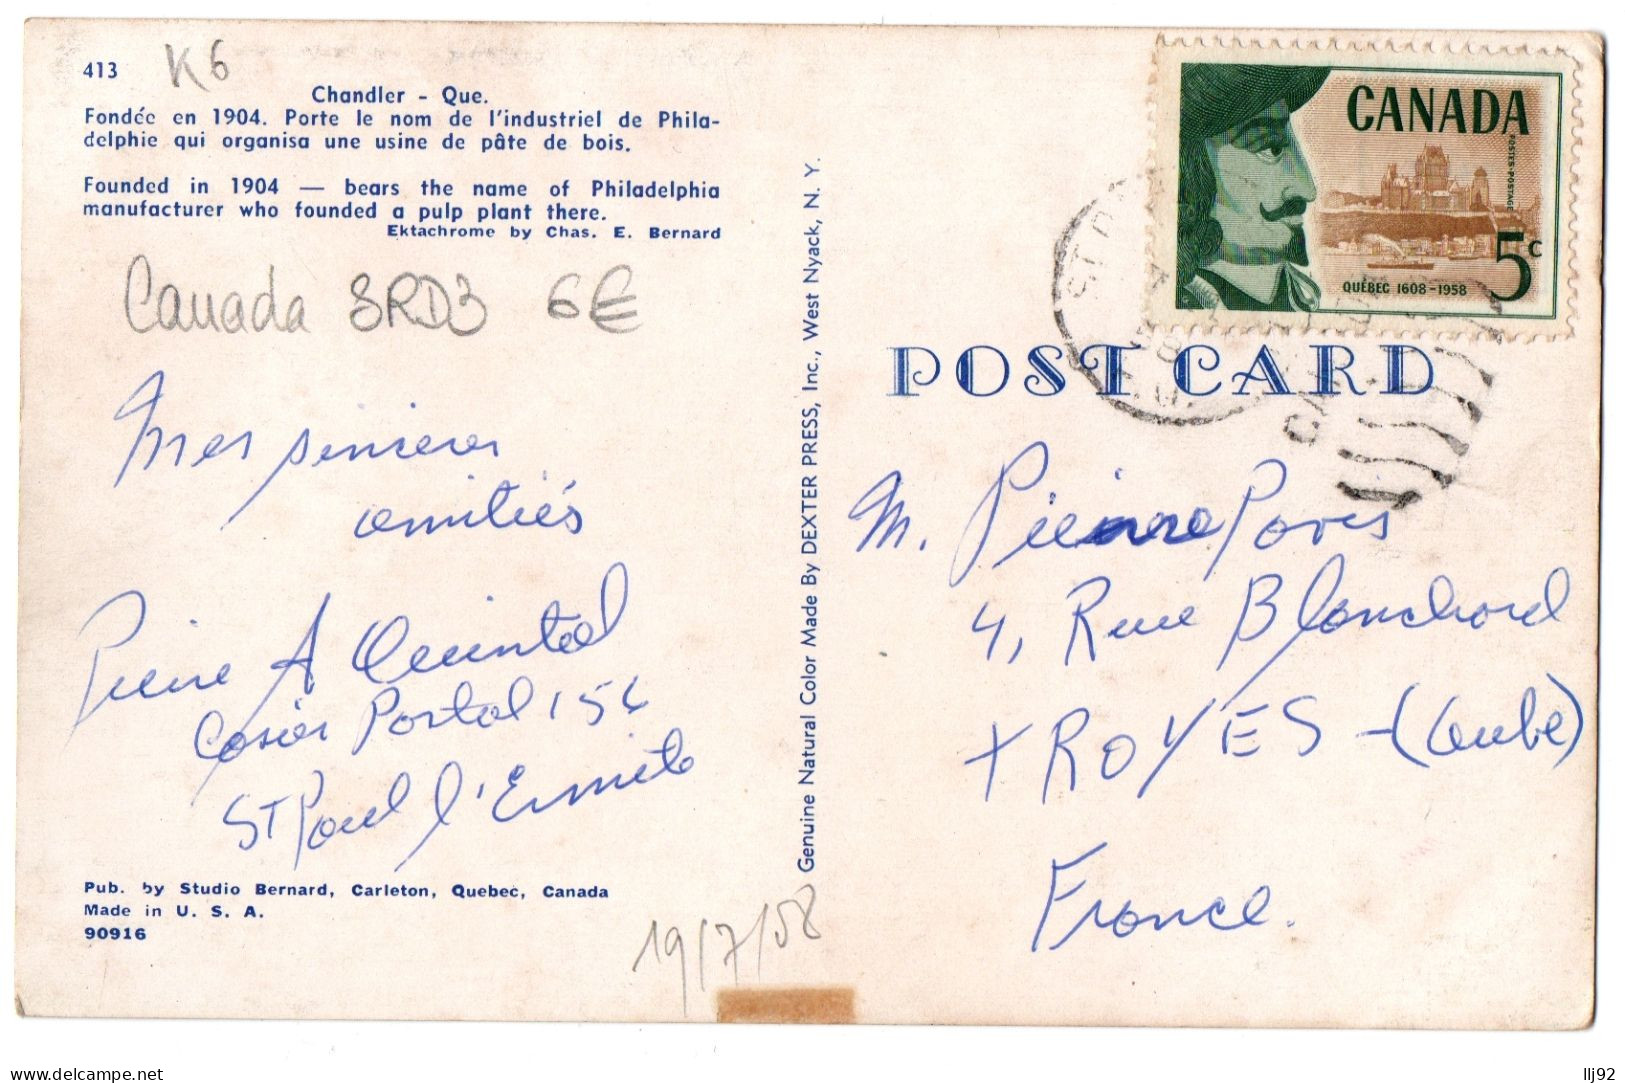 413
K6
Chandler - Que.
Fondée en 1904. Porte le nom de l'industriel de Phila-
delphie qui organisa une usine de pâte de bois.
Founded in 1904 — bears the name of Philadelphia
manufacturer who founded a pulp plant there.
Ektachrome by Chas. E. Bernard
Canada 3RD3 6€
Mes sincères
amitiés
Pierre A Quintal
Casier Postal 156
ST Paul l'Ermite
Pub. by Studio Bernard, Carleton, Quebec, Canada
Made in U. S. A.
90916
19/7/58
Genuine Natural Color Made By DEXTER PRESS, Inc., West Nyack, N. Y.
CANADA
POSTES-POSTAGE
5c
QUÉBEC 1608-1958
POST CARD
M. Pierre Paris
4, Rue Blanchard
TROYES - (Aube)
France.
llj92